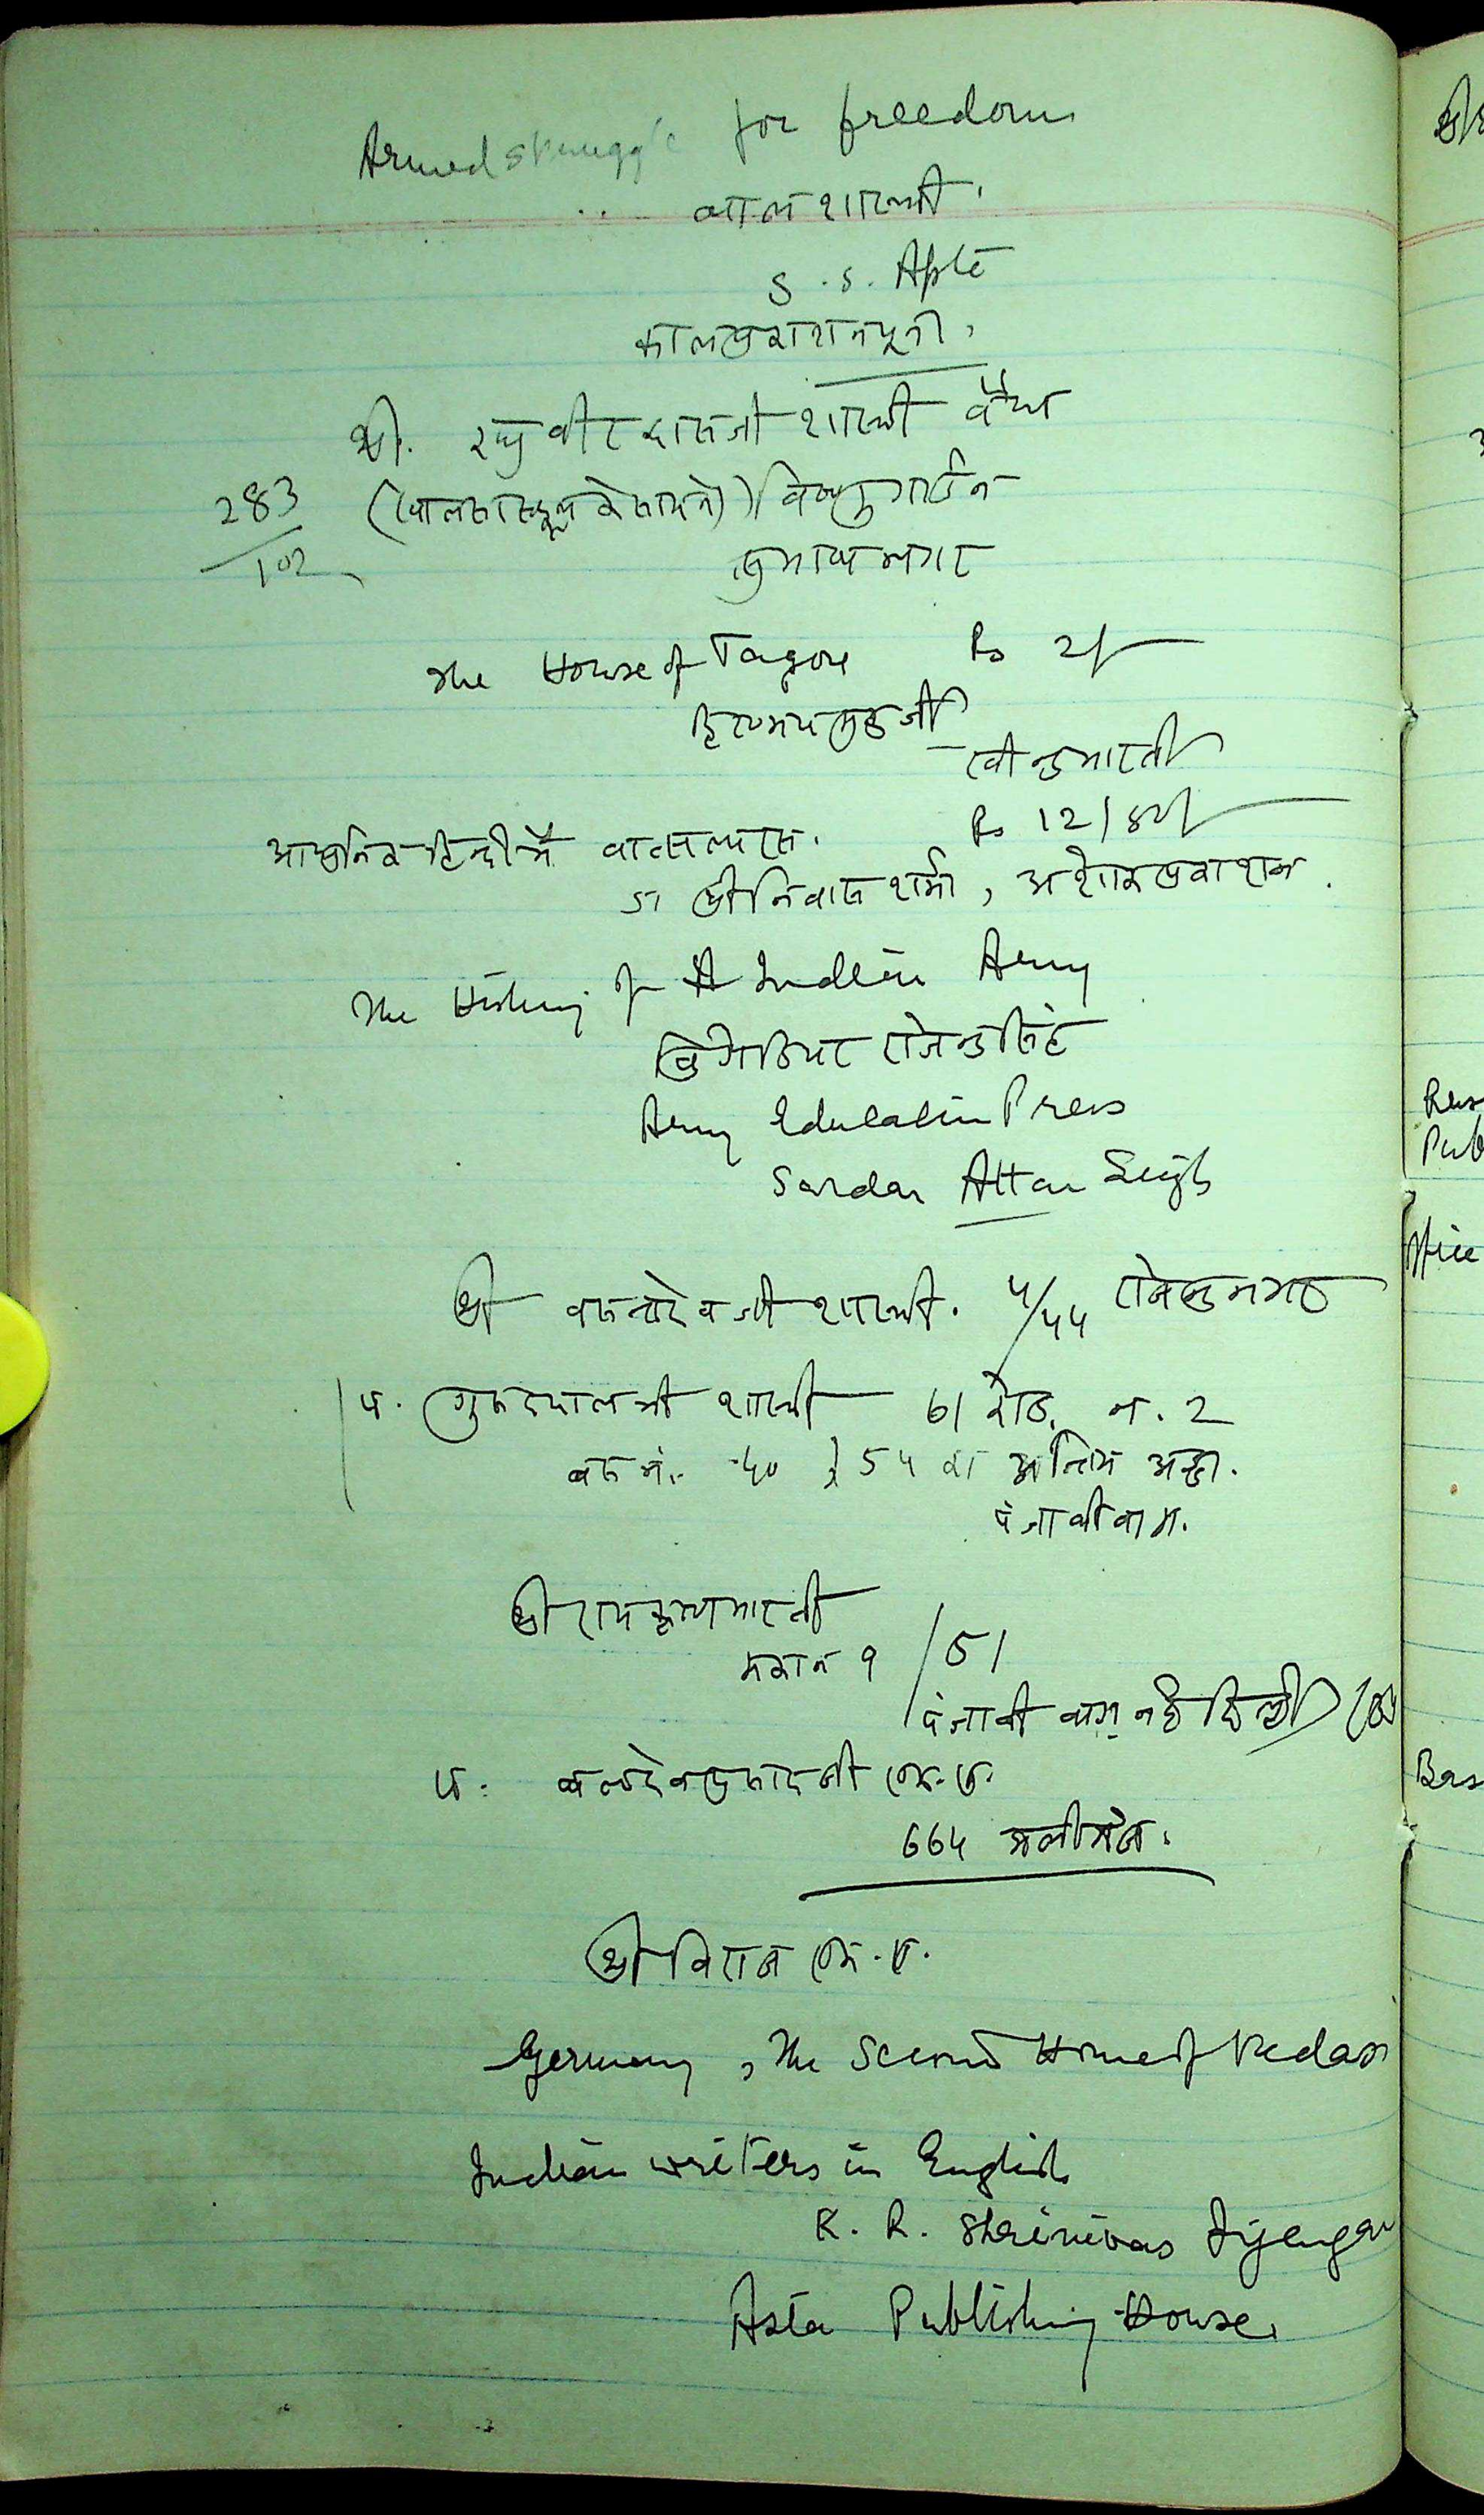 Armed struggle for freedom
बाल शास्त्री.
S. S. Apte
काल प्रकाशन पूना.
श्री. रघुवीर दासजी शास्त्री वैद्य
283 / 102
(खालसा स्कूल के सामने) विष्णु गार्डन
सुभाष नगर
The House of Tagore Rs 2/-
हिरण्मय मुकर्जी
रवीन्द्र भारती
आधुनिक हिन्दी में वात्सल्य रस. Rs 12/50/-
डा श्रीनिवास शर्मा, अशोक प्रकाशन.
The History of Indian Army
ब्रिगेडियर राजेन्द्र सिंह
Army Education Press
Sardar Attar Singh
श्री वसन्तदेव जी शास्त्री. ५/५५ राजेन्द्र नगर
पं. गुरुदयाल जी शास्त्री 61 रोड. न. 2
बस नं. 5५ का अन्तिम अड्डा.
पंजाबी बाग.
श्री रामकृष्ण भारती
मकान १ / 51
पंजाबी बाग नई दिल्ली
पं. बलदेव प्रसाद जी एम. ए.
66५
श्री विराज एम. ए.
Germany, The Second Home of Vedas
Indian writers in English
K. R. Shrinivas Iyengar
Asia Publishing House.